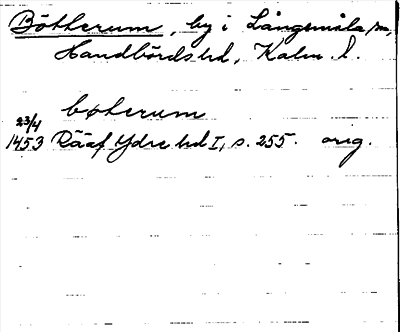 Bötterum, by i Långemåla sn,
Handbörds hd, Kalm. l.
bøterum
23/4
1453 Rääf Ydre hd I, s. 255. orig.